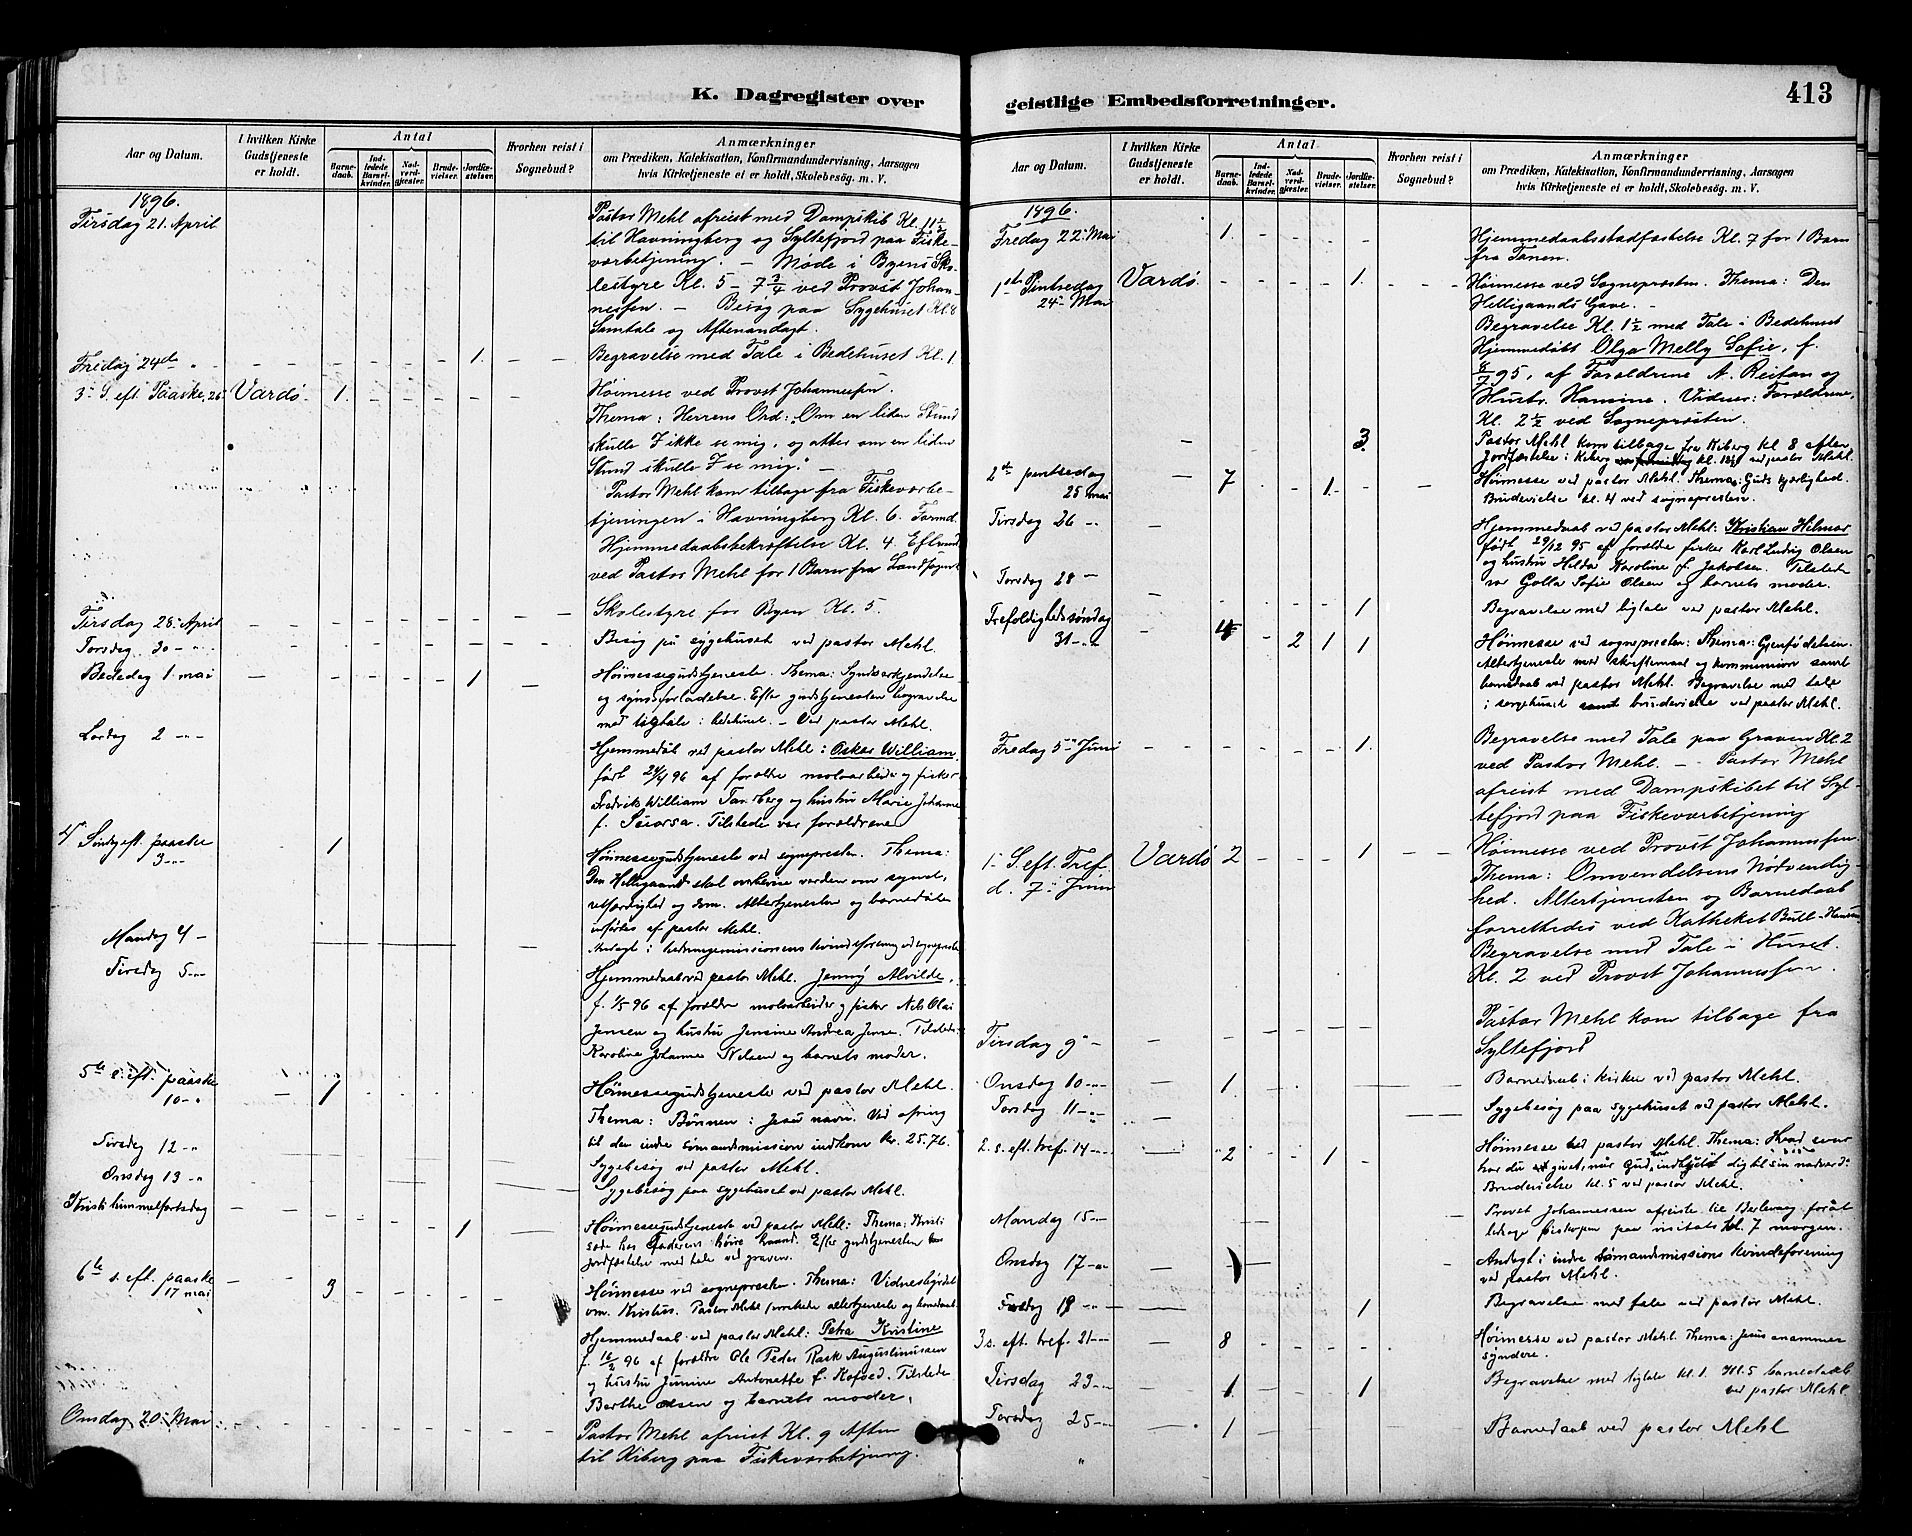 K. Dagregister over
Aar og Datum.
I hvilken Kirke Gudstjeneste er holdt.
Antal
Barnedaab.
Indledede Barselkvinder.
Nadverdgjester.
Brudevielser.
Jordfæstelser.
Hvorhen reist i Sognebud?
Anmærkninger
om Prædiken, Katekisation, Konfirmandundervisning, Aarsagen
hvis Kirketjeneste ei er holdt, Skolebesøg. m. V.
1896.
Tirsdag 21. April
Pastor Mehl afreist med Dampskib Kl. 11½
til Havningberg og Syltefjord paa Fiske-
værbetjening. – Møde i Byens Sko-
lestyre Kl. 5 – 7¾ ved Provst Johan-
nessen. – Besøg paa Sygehuset Kl. 8
Samtale og Aftenandagt.
Fredag 24de " 1.
Begravelse med Tale i Bedehuset Kl. 1
3. S. eft. Paaske, 26 Vardø. 1.
Høimesse ved Provst Johannessen.
Thema: Herrens Ord: "Om en liden Stund
skulle I ikke se mig, og atter om en liden
Stund skulle I se mig." –
Pastor Mehl kom tilbage fra Fiskeværbe-
tjeningen i Havningberg Kl. 6. Formd.
Hjemmedaabsbekræftelse Kl. 4. Eftmd
ved Pastor Mehl for 1 Barn fra Landsognet
Tirsdag 28. April
Skolestyre for Byen Kl. 5.
Torsdag 30 - "
Besøg på sygehuset ved pastor Mehl.
Bededag 1. mai 1
Høimessegudstjeneste. Thema: Syndserkjendelse
og syndsforladelse. Efter gudstjenesten begravelse
med ligtale i bedehuset. – Ved pastor Mehl.
Lørdag 2 - " -
Hjemmedåb ved pastor Mehl: Oskar William
født 24/4 96 af forældre moloarbeider og fisker
Fredrik William Tansberg og hustru Marie Johanne
f. Tilstede var forældrene
4. Søndag eft. paaske 3 - " - 1
Høimessegudstjeneste ved sognepresten. Thema:
Den Helligaand skal overbevise verden om synd,
retfærdighed og dom. Altertjenesten og barnedåben
udførtes af pastor Mehl.
Mandag 4 -
Andagt i hedningemissionens kvindeforening ved sognepresten
Tirsdag 5 - " -
Hjemmedaab ved pastor Mehl. Jenny Alvilde,
f. 1/5 96 af forældre moloarbeider og fisker Nels Olai
Jensen og hustru Jensine Andrea Jense. Tilstede:
Karoline Johanne Nelsen og barnets moder.
5te s. eft. paaske 10 - " 1
Høimessegudstjeneste ved pastor Mehl.
Thema: Bønnen i Jesu navn. Ved ofring
til den indre sømandsmission indkom kr. 25.76.
Tirsdag 12 - "
Sygebesøg ved pastor Mehl.
Onsdag 13 - "
Sygebesøg paa sygehuset ved pastor Mehl.
Kristi himmelfartsdag 1
Høimessegudstjeneste ved pastor Mehl: Thema: Kristi
sæde hos Faderens høire haand. Efter gudstjenesten
jordfæstelse med tale ved graven.
6te s. eft. paaske 17 mai 3
Høimesse ved sognepresten. Thema: Vidnesbyrdet
om Kristus. Pastor Mehl forrettede altertjeneste og barnedaab.
Hjemmedaab ved pastor Mehl: Petra Kristine
f. 16/2 96 af forældre Ole Peder Rask Augustinussen
og hustru Jumine Antonette f. Kofoed. Tilstede
Berthe Olsen og barnets moder.
Onsdag 20. Mai
Pastor Mehl afreist Kl. 9 Aften
til Kiberg paa Fiskeværbetjening.
geistlige Embedsforretninger.
413
Aar og Datum.
I hvilken Kirke Gudstjeneste er holdt.
Antal
Barnedaab.
Indledede Barselkvinder.
Nadverdgjester.
Brudevielser.
Jordfæstelser.
Hvorhen reist i Sognebud?
Anmærkninger
om Prædiken, Katekisation, Konfirmandundervisning, Aarsagen
hvis Kirketjeneste ei er holdt, Skolebesøg. m. V.
1896.
Fredag 22. Mai 1.
Hjemmedaabsstadfæstelse Kl. 7 for 1 Barn
fra Tanen.
1ste Pintsedag 24. Mai Vardø. 1.
Høimesse ved Sognepræsten. Thema: Den
Helligaands Gave. –
Begravelse Kl. 1½ med Tale i Bedehuset
Hjemmedøbt Olga Melly Sofie, f.
8/7 95, af Forældrene A. Reitan og
Hustr. Hansine. Vidner: Forældrene,
Kl. 2½ ved Sognepræsten.
3
Pastor Mehl kom tilbage fra Kiberg kl. 8 aften
Jordfæstelse i Kiberg kl. ved pastor Mehl.
2den pintsedag 25 mai 7 1
Høimesse ved pastor Mehl. Thema: Guds kjærlighed.
Brudevielse kl. 4 ved sognepresten.
Tirsdag 26 - "
Hjemmedaab ved pastor Mehl: Kristian Hilmar
født 29/12 95 af forældre fisker Karl Ludvig Olsen
og hustru Hilda Karoline f. Jakobsen. Tilstede
var Golla Sofie Olsen og barnets moder.
Torsdag 28 - 1
Begravelse med ligtale ved pastor Mehl.
Trefoldighedssøndag 31 - " 4 2 1 1
Høimesse ved sognepresten: Thema: Gjenfødelsen.
Altertjeneste med skriftemaal og kommunion samt
barnedaab ved pastor Mehl. Begravelse med tale
i sørgehuset samt brudevielse ved pastor Mehl.
Fredag 5. Juni 1.
Begravelse med Tale paa Graven Kl. 2
ved Pastor Mehl. – Pastor Mehl
afreist med Dampskibet til Syl-
tefjord paa Fiskeværbetjening
1. S. eft. Tref. d. 7. Juni Vardø 2 1
Høimesse ved Provst Johannessen
Thema: Omvendelsens Nødvendig
hed. Altertjenesten og Barnedaab
forrettedes ved Katheket Bull-Hansen
Begravelse med Tale i Huset.
Kl. 2 ved Provst Johannessen.
Tirsdag 9. -
Pastor Mehl kom tilbage fra
Syltefjord
Onsdag 10 - " 1
Barnedaab i kirken ved pastor Mehl.
Torsdag 11 - "
Sygebesøg paa sygehuset ved pastor Mehl.
2. s. eft. tref. 14 - " 2 1
Høimesse ved pastor Mehl. Thema: Hvad svar
har du givet, når Gud har indbudt dig til sin nadverd?
Brudevielse kl. 5 ved pastor Mehl.
Mandag 15 - "
Provst Johannessen afreiste til Berlevaag for at
ledsage Biskopen paa visitats kl. 7 morgen.
Onsdag 17 - "
Andagt i indre sømandsmissions kvindeforening
ved pastor Mehl.
19 - " 1
Begravelse med tale ved pastor Mehl.
3 s. eft. tref. 21 - " 8
Høimesse ved pastor Mehl. Thema: Jesus anammer
syndere.
Tirsdag 23 - " 1 1
Begravelse med ligtale kl. 1. Kl. 5 barnedaab
ved pastor Mehl
Torsdag 25 - " 1
Barnedaab ved pastor Mehl